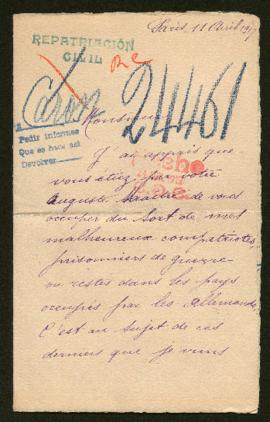 Paris, 11 Avril 191
REPATRIACIÓN
CIVIL
24461
Caron
Monsieur
Pedir informes
Que se hace así
Devolver
J'ai appris que
vous étiez par votre
Auguste de vous
occuper du sort de mes
malheureux compatriotes,
prisonniers de guerre
ou restés dans les pays
occupés par les allemands.
C'est au sujet de ces
derniers que je viens